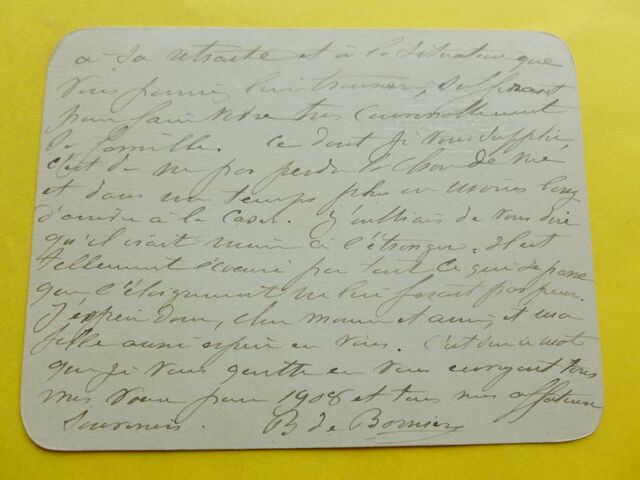 à sa retraite et à la situation que
vous pourrez lui trouver, suffirait
pour faire vivre très convenablement
sa famille. Ce dont je vous supplie
c'est de ne pas perdre la chose de vue
et dans un temps plus ou moins long
d'arriver à le caser. J'oubliais de vous dire
qu'il irait même à l'étranger. Il est
tellement écœuré par tout ce qui se passe
que l'éloignement ne lui ferait pas peur.
J'espère donc, cher et ami, et ma
fille aussi espère en vous. C'est sur ce mot
que je vous quitte en vous envoyant tous
mes vœux pour 1908 et tous mes affectueux
souvenirs. B de Bornier